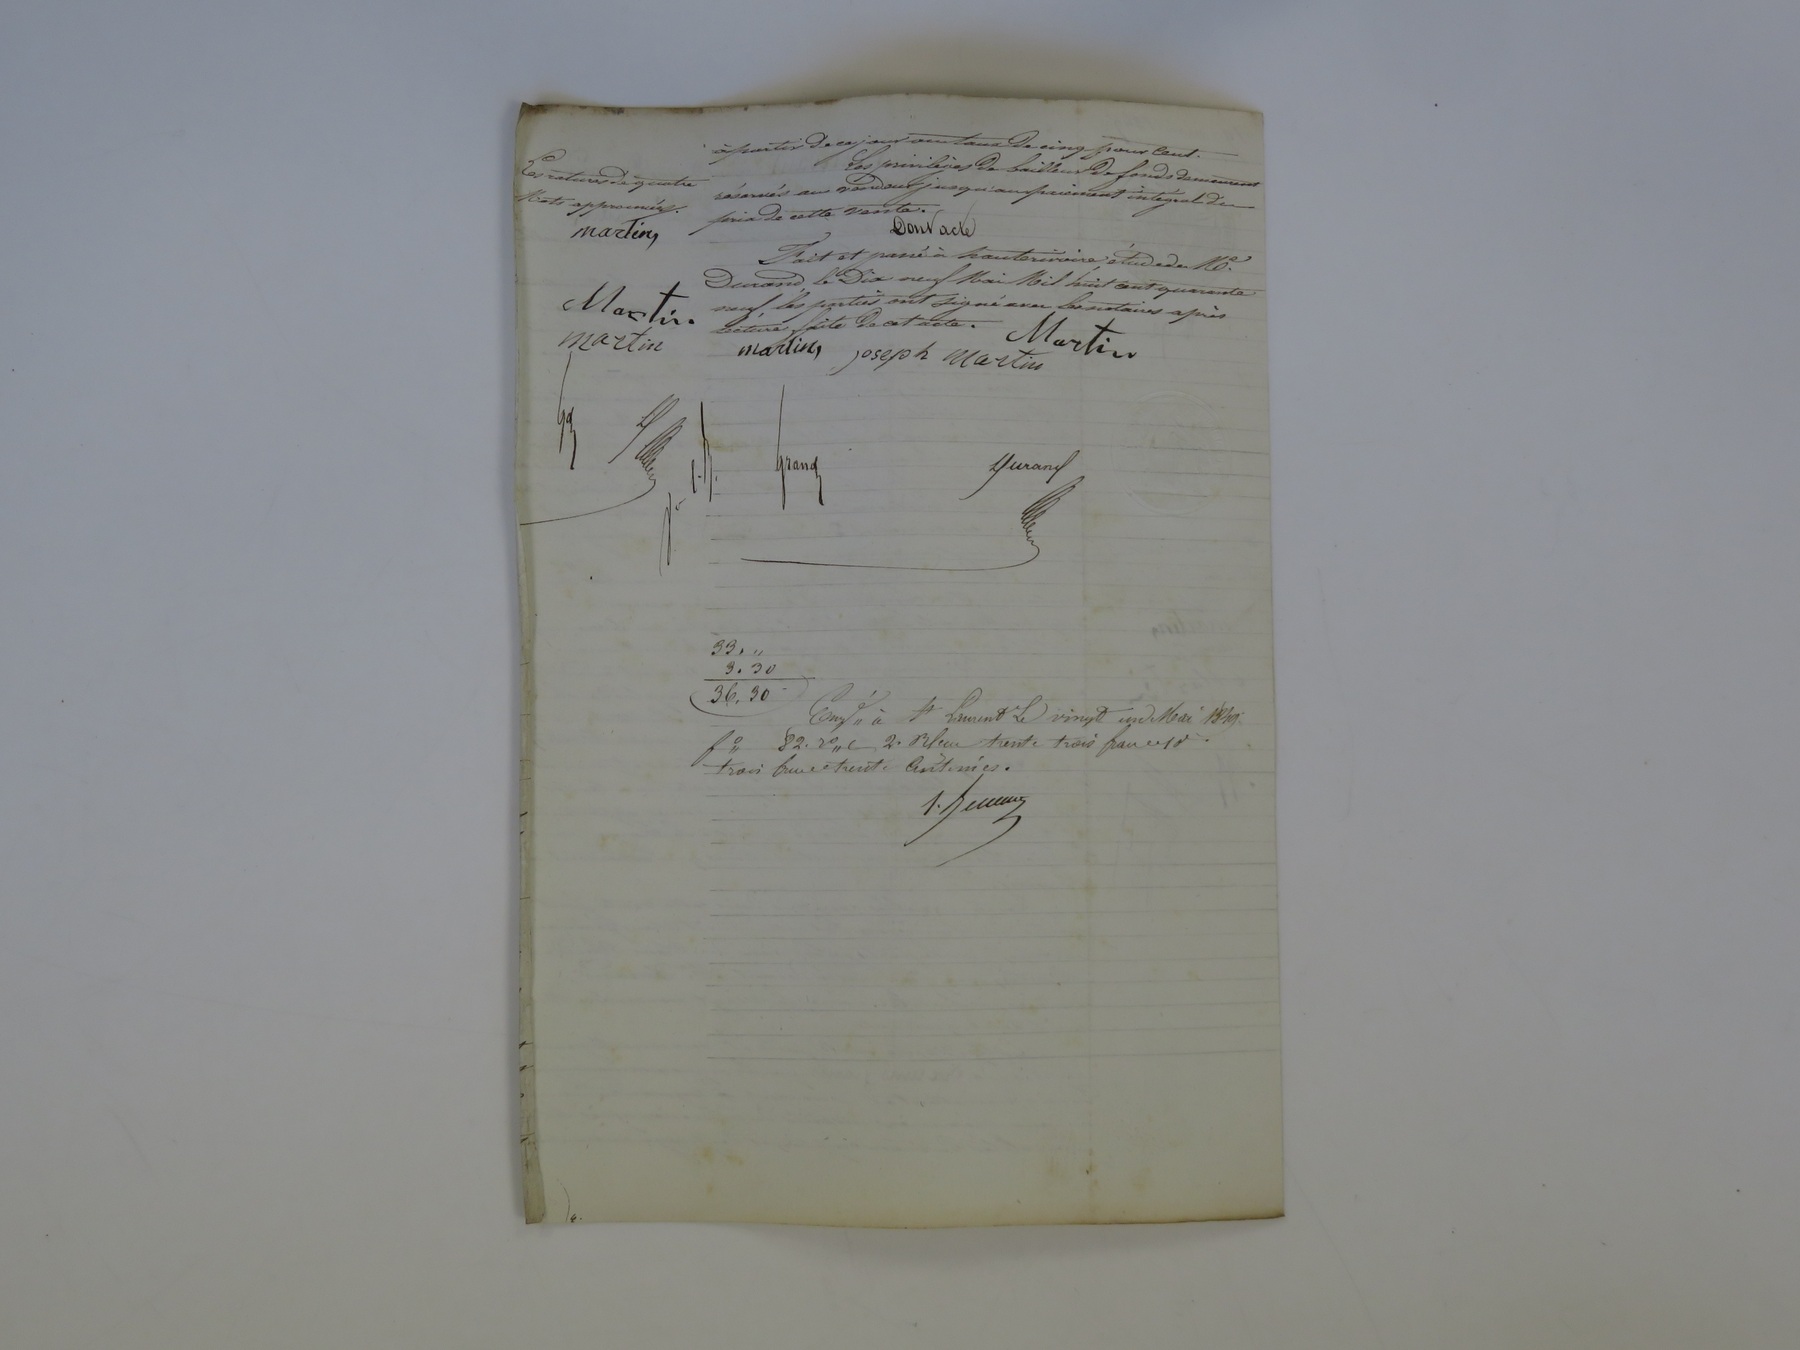 à partir de ce jour au taux de cinq pour cent.
Les privilèges de bailleur de fonds demeurent
réservés au vendeur jusqu'au paiement intégral du
prix de cette vente.
Dont acte
Fait et passé à hauterivoire étude de Me.
Durand, le Dix neuf Mai Mil huit cent quarante
neuf, les parties ont signé avec les notaires après
lecture faite de cet acte.
Martin
martin, joseph Martin
grand
Durand
ratures de quatre
Mots approuvées.
martin,
Martin.
martin
33. "
3. 30
36. 30
à St Laurent Le vingt un Mai 1849.
fo 82. ro c 2. trente trois francs
trois francs trente centimes.